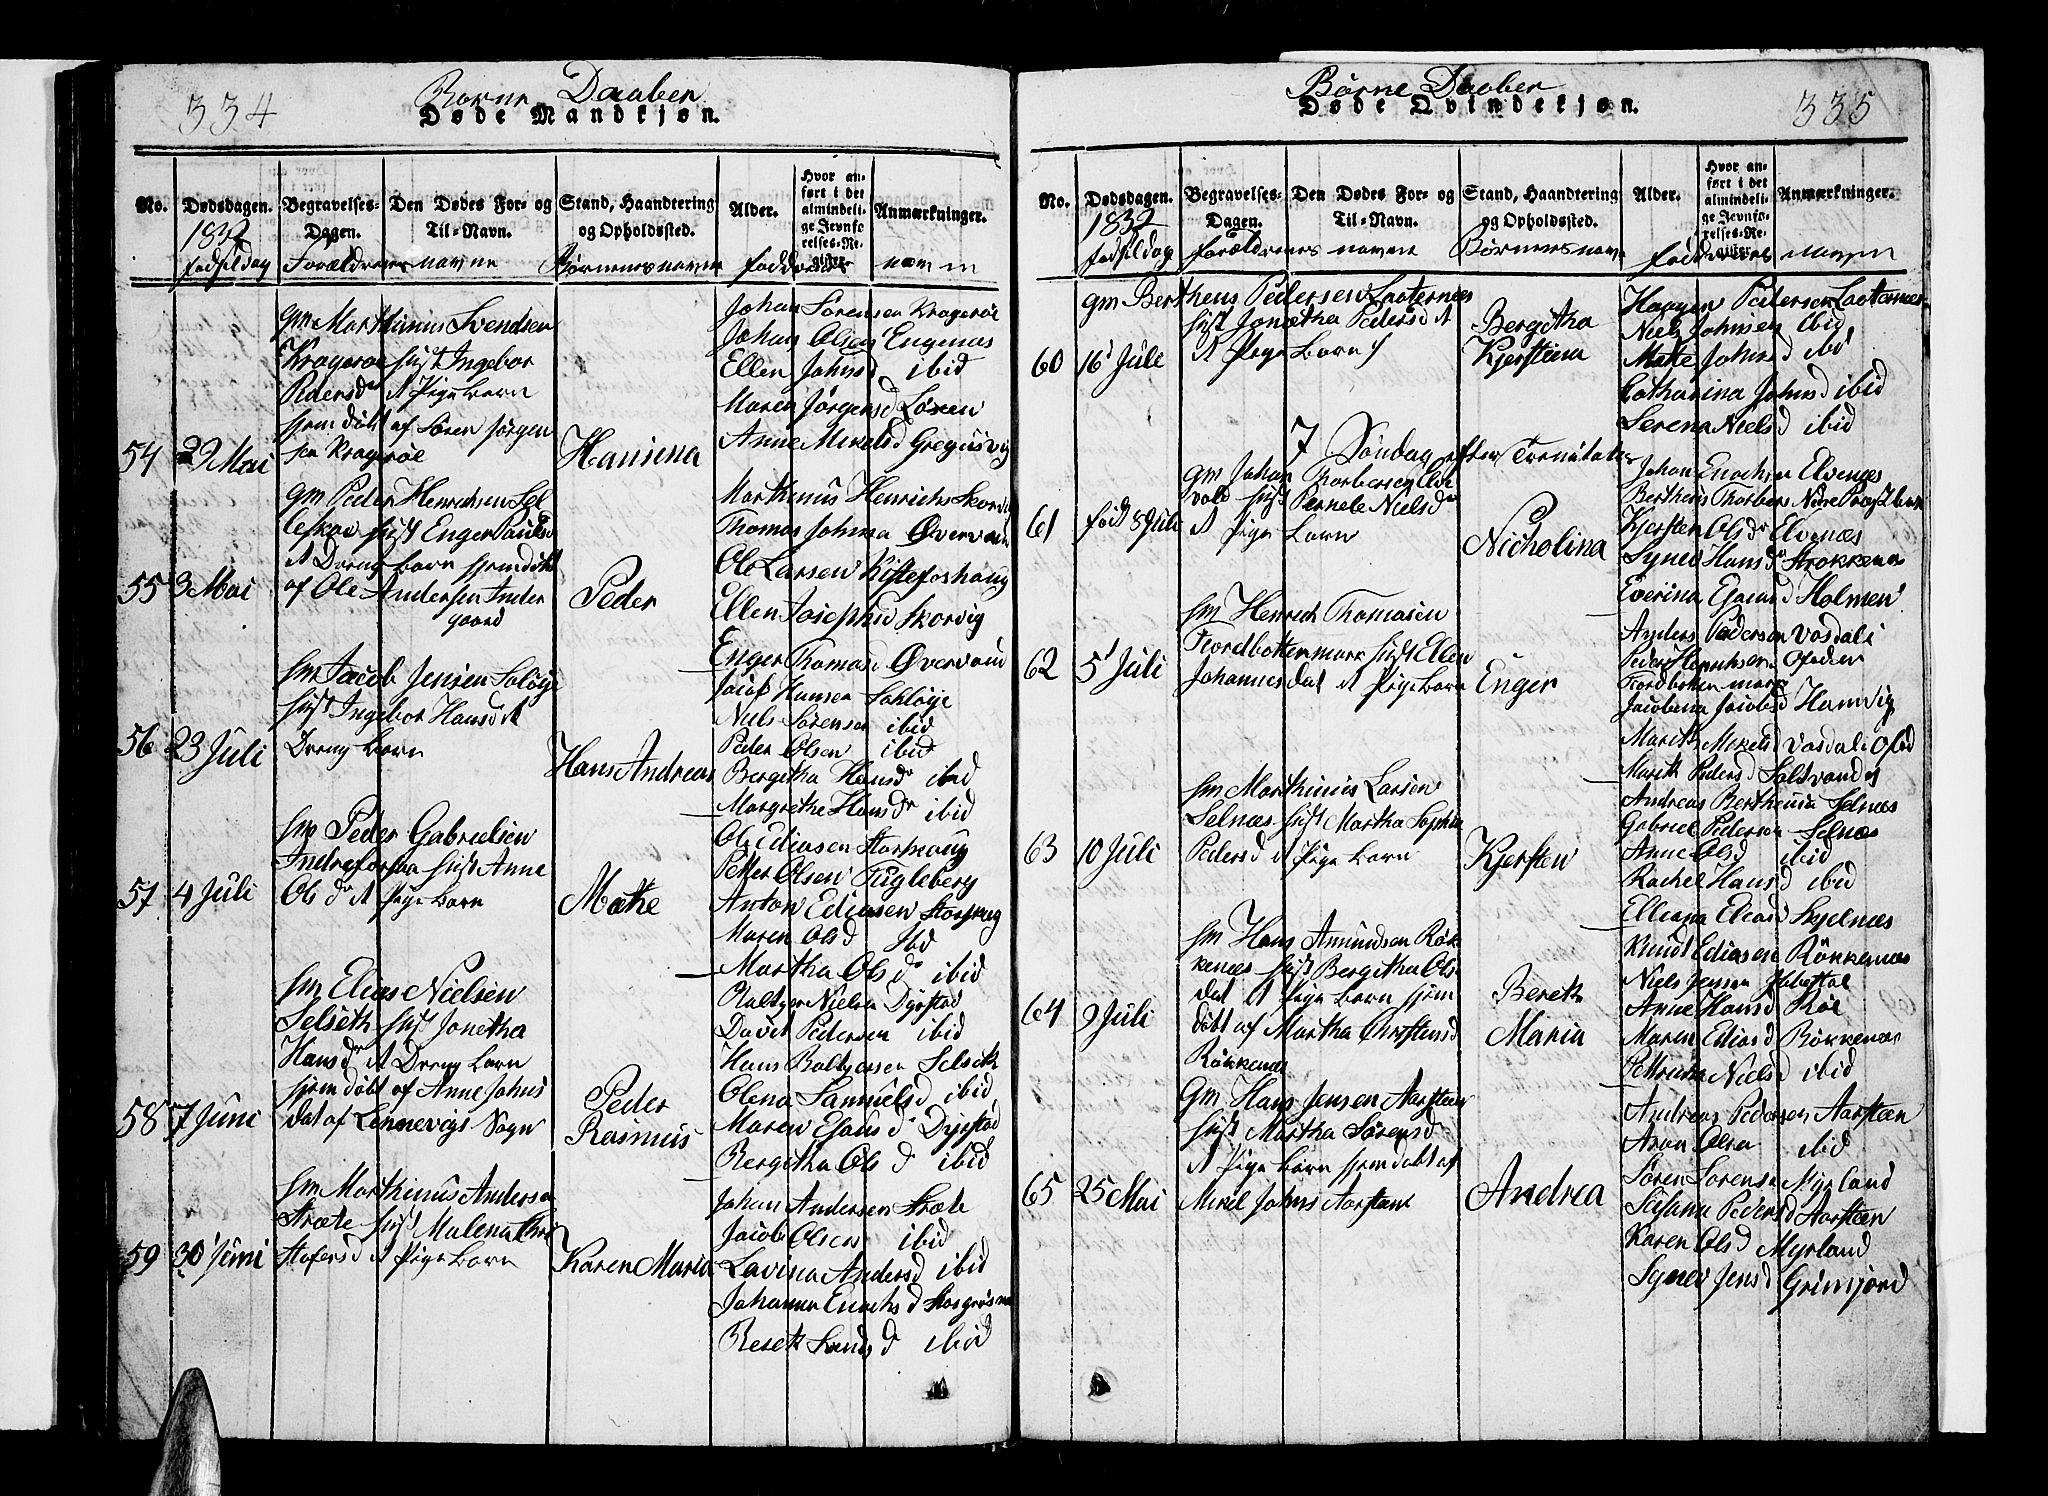 334
Børne Daaber
Døde Mandkjøn.
No.
Dødsdagen.
Begravelses-
Dagen.
Den Dødes For- og
Til-Navn.
Stand, Haandtering
og Opholdssted.
Alder.
Hvor an-
ført i det
almindeli-
ge Jevnfø-
relses-Re-
gister.
Anmærkninger.
1832
fødselsdag
Forældrenes navne
Børnenes navne
fadderes navne
gm Marthinus Svendsen
Kragerøe hust Ingebor
Pedersdr et Pige Barn
hjemdøbt af Søren Jørgen
sen Kragerøe
54
29 Mai
Hansina
Johan Sørensen Kragerøe
Johan Olsen Engenæs
Ellen Johnsd ibid
Maren Jørgensd
Anne Mikelsd Gregusvig
gm Peder Henrichsen Sel
leskov hust Enger Paulsd
et Dreng barn hjemdøbt
af Ole Andersen Inder
gaard
55
3 Mai
Peder
Marthinus Henrichs Skorvig
Thomas Johnsen Øvervand
Ole Larsen Kistefoshaug
Ellen Josephsd Skorvig
Enger Thomasd Øvervand
gm Jacob Jensen Soløye
hust Ingebor Hansd et
Dreng Barn
56
23 Juli
Hans Andreas
Jacob Hansen Soløye
Niels Sørensen ibid
Peder Olsen ibid
Bergitha Hansdr ibid
Margrethe Hansdr ibid
gm Peder Gabrielsen
Indrefor hust Anne
Olsdr et Pige Barn
57
4 Juli
Mathe
Ole Ediasen Storhaug
Petter Olsen Fugleberg
Anton Ediasen Storhaug
Maren Olsd Ibd
Martha Olsdr ibid
gm Elias Nielsen
Selseth hust Jonetha
Hansdr et Dreng barn
hjemdøbt af Anne Johns
dat af Lennevigs Sogn
58
7 Juni
Peder
Rasmus
Baltzer Nielsen Dyrstad
Davit Pedersen ibid
Hans Baltzersen Selseth
Olena Samuelsd ibid
Maren Esausd Dyrstad
Bergitha Olsd ibid
gm Marthinus Andersen
Stræte hust Malena Chri
stofersd et Pige Barn
59
30 Juni
Karen Maria
Johan Andersen Stræte
Jacob Olsen ibid
Lavina Andersd ibid
Johanna Enochsd
Bereth Svendsd ibid
335
Børne Daaber
Døde Qvindekjøn.
No.
Dødsdagen.
Begravelses-
Dagen.
Den Dødes For- og
Til-Navn.
Stand, Haandtering
og Opholdssted.
Alder.
Hvor an-
ført i det
almindeli-
ge Jevnfø-
relses-Re-
gister.
Anmærkninger.
1832
fødselsdag
Forældrenes navne
Børnenes navne
fadderes navne
gm Bertheus Pedersen Laaternæs
hust Jonetha Pedersd et
et Pige Barn
60
16 Juli
Bergitha
Kjerstina
Haagen Pedersen Laaternæs
Niels Johnsen ibid
Mathe Johnsd ibid
Catharina Johnsd ibid
Serena Nielsd ibid
7 Søndag efter Trenitates
gm Johan Thorbersen Elve
vold hust Pernele Nielsdr
et Pige Barn
61
født 8 Juli
Nicholina
Johan Enochsen Elvenæs
Bertheus Thorbers
Kjersten Olsdr Elvenæs
Synev Hansdr Strokkenæs
Everina Esausd Holmen
gm Henrich Thomasen
Fiordbottenmark hust Ellen
Johannesdat et Pige Barn
62
5 Juli
Enger
Anders Pedersen Vasdali
Peder Henrichsen Ofoden
Fiordbotten mark
Jacobena Jacobsd Hamvig
Marith Mikelsd Vasdali Ofod
Marith Pedersd Saltvandet
gm Marthinus Larsen
Selnæs hust Martha Sophia
Pedersd et Pige Barn
63
10 Juli
Kjersten
Andreas Bertheusen Selnæs
Gabriel Pedersen Selnæs
Anne Olsd ibid
Rachel Hansd ibid
Elliana Eliasd Skjelnæs
gm Hans Amundsen Røk
kenæs hust Bergitha Ols
dat et Pige Barn hjem
døbt af Martha Christensd
Røkkenæs
64
9 Juli
Bereth
Maria
Knudt Ediasen Røkkenæs
Niels Jensen Ibbestad
Anne Hansd Røe
Maren Ediasd Røkkenæs
Petrina Nielsd ibid
gm Hans Jensen Aarsteen
hust Martha Sørensd
et Pige Barn hjemdøbt af
Mikel Johns Aarsteen
65
25 Mai
Andrea
Andreas Pedersen Aarsteen
Aron Olsen ibid
Søren Sørensen Myrland
Susana Pedersd Aarsteen
Karen Olsd Myrland
Synev Jensd Grimsjord